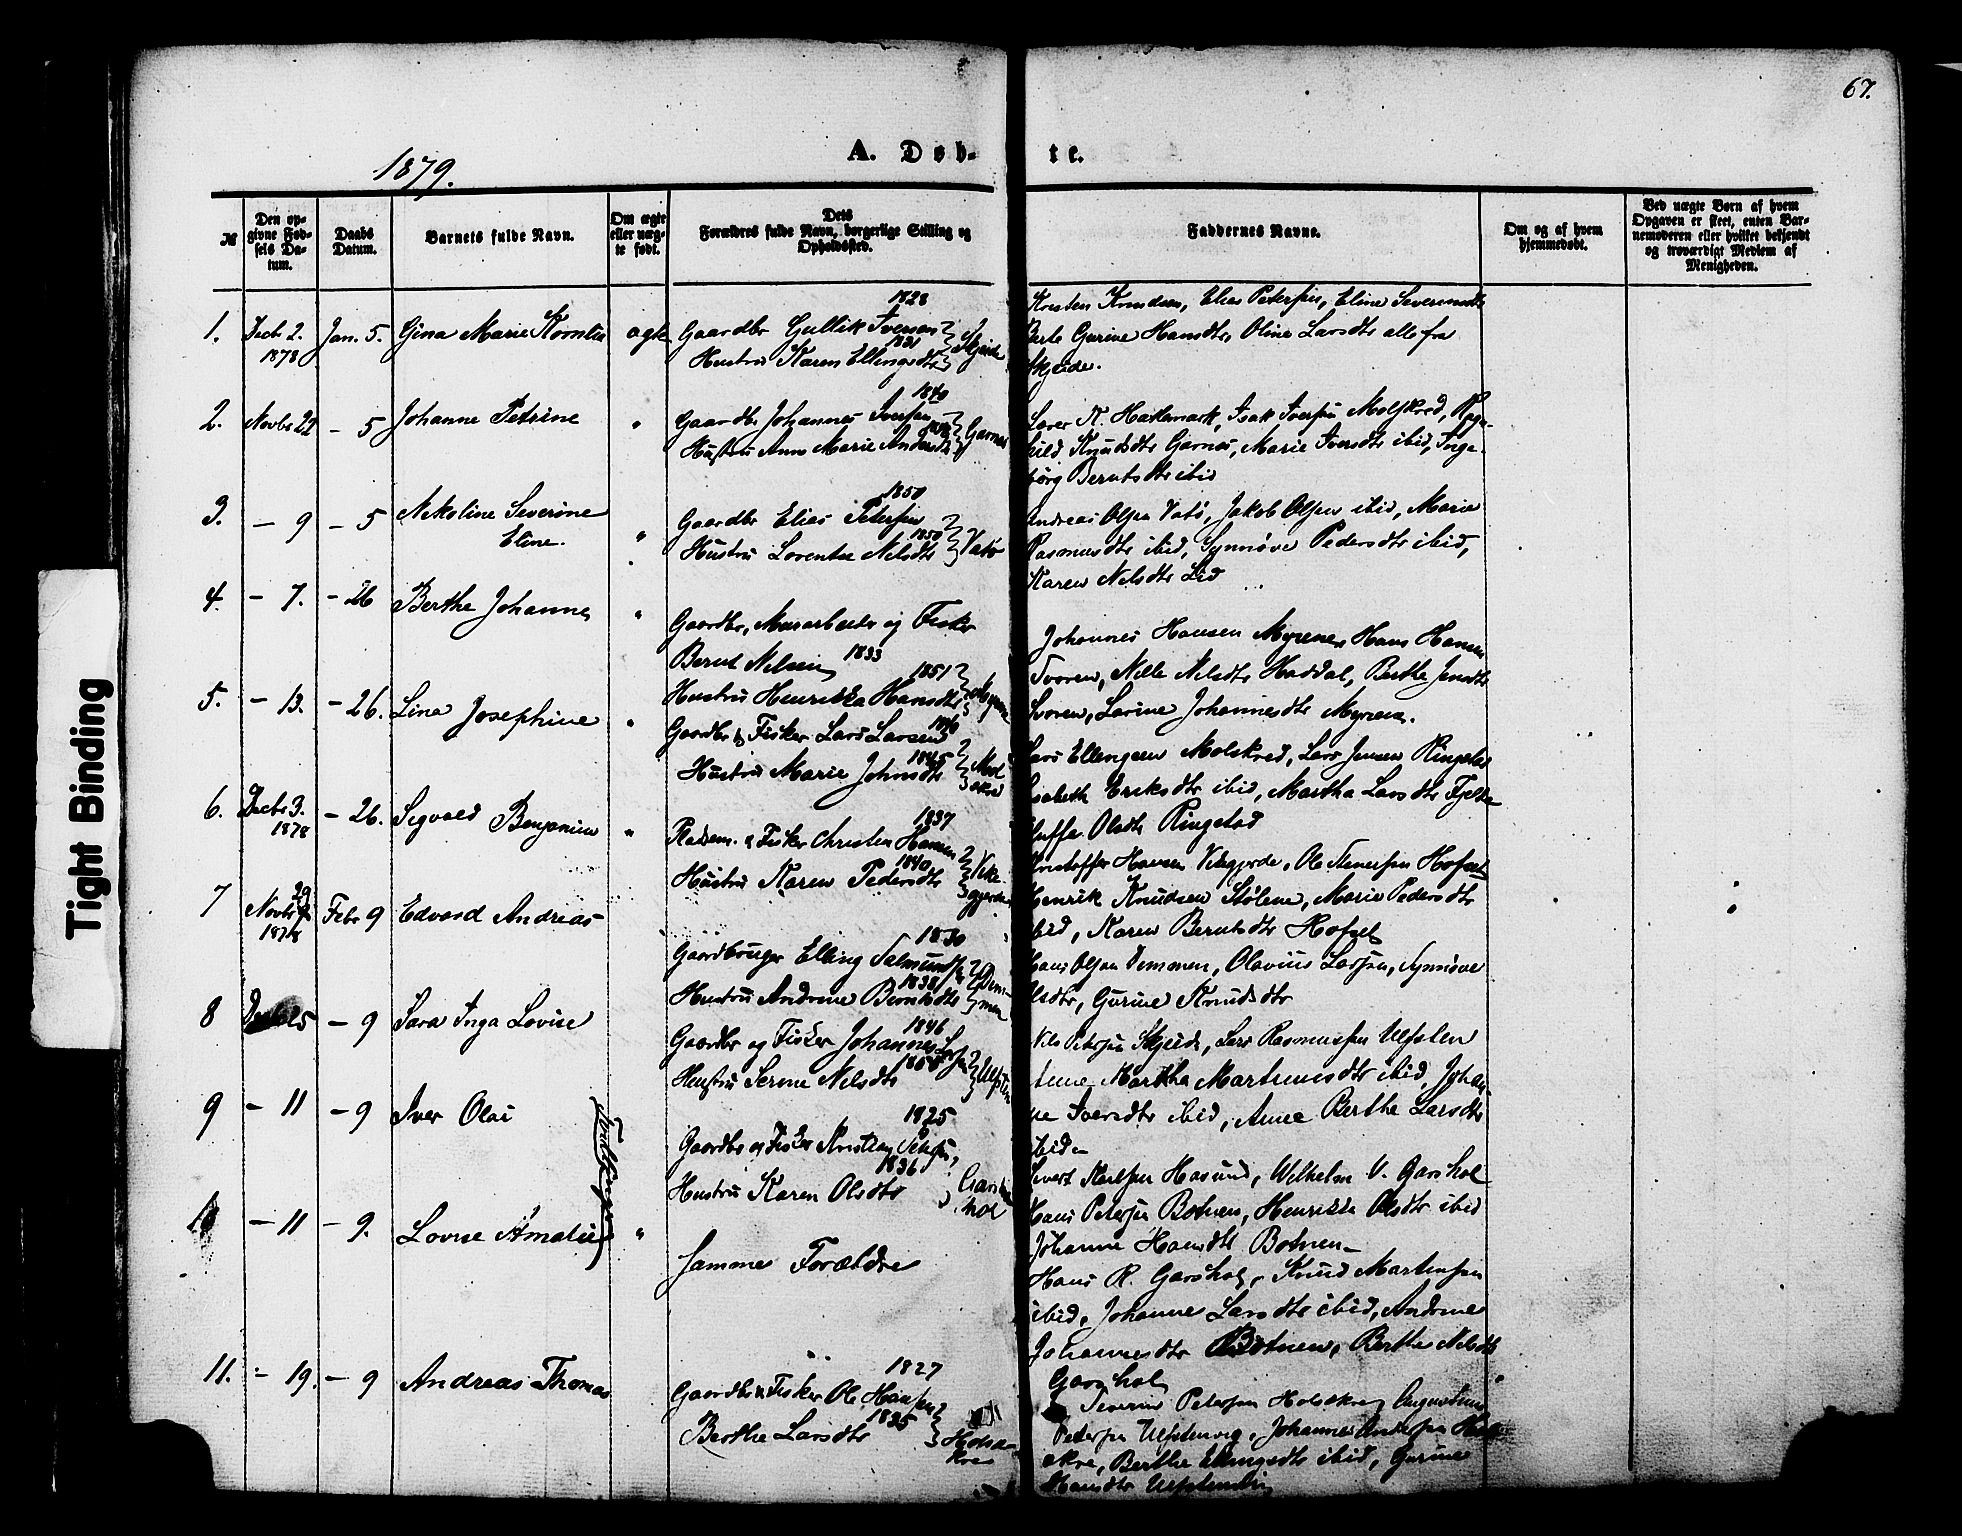 67.
1879.
A. Døb-
te.
№
Den op-
givne Fød-
sels Da-
tum.
Daabs
Datum.
Barnets fulde Navn.
Om ægte
eller uæg-
te født.
Dets
Forældres fulde Navn, borgerlige Stilling og
Opholdssted.
Faddernes Navne.
Om og af hvem
hjemmedøbt.
Ved uægte Børn af hvem
Opgaven er skeet, enten Bar-
nemoderen eller hvilket bekjendt
og troværdigt Medlem af
Menigheden.
1.
Decb. 2.
1878
Jan. 5.
Gina Marie
ægte
1828
Gaardbr Gullik Iversen
1831
Hustru Karen Ellingsdtr
Skjeide
Kristen Knudsen, Elias Petersen, Eline
Gurine Hansdtr, Oline Larsdtr alle fra
Skjeide.
2.
Novbr 22
- 5
Johanne Petrine
"
1840
Gaardbr Johannes Iversen
Hustru Anne Marie
Garnes
Lærer K. Hatlemark, Isak Iversen Molskred, Rag-
hild Knudsdtr Garnes, Marie Iversdtr ibid, Inge-
borg Berntsdtr ibid
3.
- 9
- 5
Nikoline Severine
Eline.
"
1850
Gaardbr Elias Petersen
1850
Hustru Lorentse Nilsdtr
Vatø
Andreas Olsen Vatø, Jakob Olsen ibid, Marie
Rasmusdtr ibid, Synnøve Pedersdtr ibid,
Karen Nilsdtr Lid
4.
- 7.
- 26
Berthe Johanne
"
Gaardbr, Murarbeider og Fisker
Bernt Nilsen 1833
1851
Hustru Henrikka Hansdtr
Myrene
Johannes Hansen Myrene, Hans Hansen
Nille Nilsdtr Haddal, Berthe Jensdtr
Larine Johannesdtr Myrene.
5.
- 13.
- 26.
Lina Josephine
"
Gaardbr & Fisker Lars Larsen
1845
Hustru Marie Johnsdtr
Mol
skred
Lars Ellengsen Molskred, Lars Jensen Ringstad
Elisabeth Eriksdtr ibid, Martha Larsdtr
Olsdtr Ringstad
6.
Decbr 3.
1878
- 26.
Sigvald Benjamin
"
1837
Pladsem. & Fisker Christen Hansen
1840
Hustru Karen Pedersdtr
Vike
gjerde
Kristoffer Hansen Vikegjerde, Ole
Henrik Knudsen Stølene, Marie Pedersdtr
ibid, Karen Berntsdtr Hofset
7
29
Novbr
1878
Febr 9
Edvard Andreas
1830
Gaardbruger Elling Salmundsen
1838
Hustru Andrine Berntsdtr
Dim-
men
Hans Olsen Dimmen, Olavius Larsen, Synnøve
Olsdtr, Gurine Knudsdtr
8
25
- 9
Sara Inga Lovise
1846
Gaardbr og Fisker Johannes Larsen
Hustru Serine Nilsdtr
Ulfsten
Nils Petersen Skjeide, Lars Rasmussen Ulfsten
Anne Martha Martinusdtr ibid, Johan-
ne Iversdtr ibid, Anne Berthe Larsdtr
ibid
9
- 11
- 9
Iver Olai
Tvillinger
1825
Gaardbr og Fisker Kristian
1836
Hustru Karen Olsdtr
Gars-
hol
Sivert Karlsen Hasund, Wilhelm V. Garshol
Hans Petersen Botnen, Henrikke Olsdtr ibid
Johanne Hansdtr Botnen
10
- 11
- 9.
Lovise Amalie
"
Samme Forældre
Hans R. Garshol, Knud Martinsen
ibid, Johanne Larsdtr ibid, Andrine
Johannesdtr Botnen, Berthe Nilsdtr
Garshol
11.
- 19.
- 9
Andreas Thomas
1827
Gaardbr & Fisker Ole Hansen
1835
Berthe Larsdtr
Holsæ-
kre
Severin Petersen Holsekre, Augustinus
Petersen Ulfstenvig, Johannes Andersen Hols-
ekre, Berthe Ellingsdtr ibid, Gurine
Hansdtr
Tight Binding